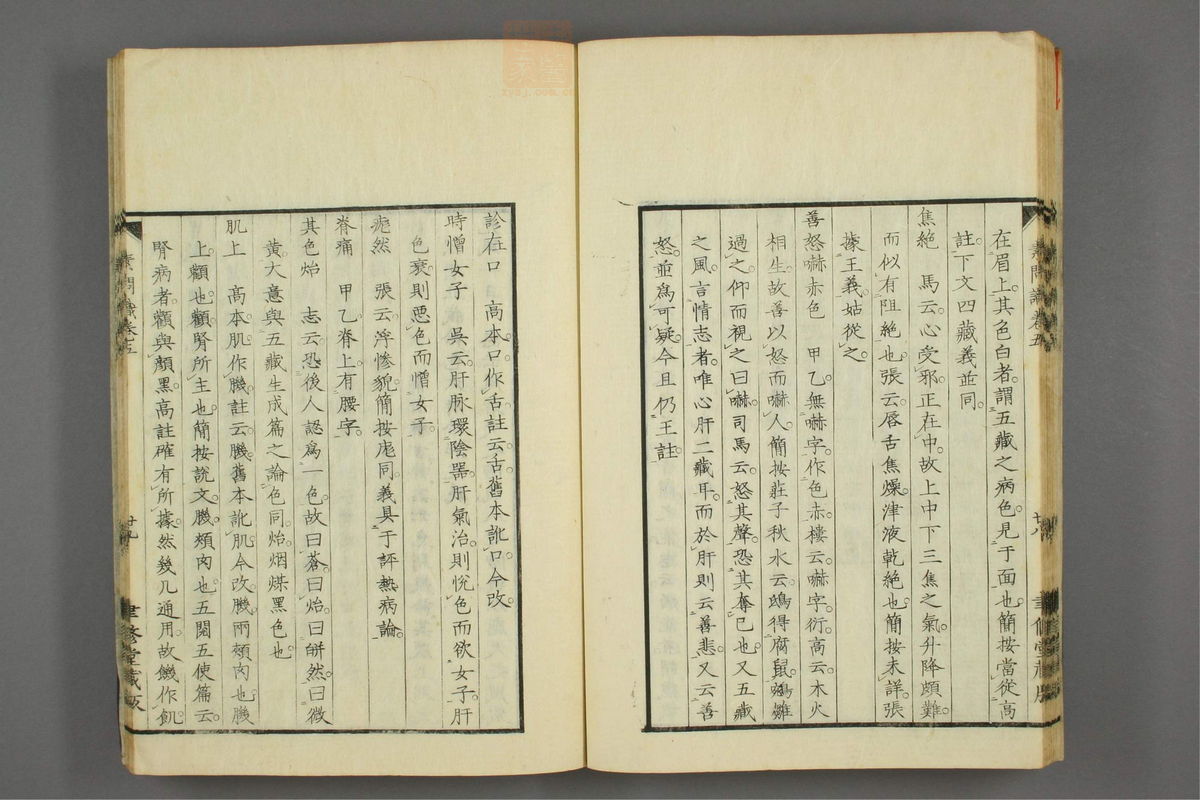 在眉上。其色白者。謂五藏之病色見于面也。簡按當從高
註。下文四藏義並同。
焦絕　馬云。心受邪。正在中。故上中下三焦之氣。升降頗難。
而似有阻絕也。張云。唇舌焦燥。津液乾絕也。簡按未詳。張
據王義。姑從之。
善怒嚇赤色　甲乙無嚇字。作色赤。樓云。嚇字衍。高云。木火
相生。故善以怒而嚇人。簡按莊子秋水云。鴟得腐鼠。鵷雛
過之。仰而視之曰嚇。司馬云。怒其聲。恐其奪己也。又五藏
之風。言情志者。唯心肝二藏耳。而於肝則云善悲。又云善
怒。並爲可疑。今且仍王註。
素問識卷五
廿八
聿修堂藏版
診在口　高本。口作舌。註云。舌舊本訛口。今改。
時憎女子　吳云。肝脉環陰器。肝氣治則悅色而欲女子。肝
色衰則惡色而憎女子。
痝然　張云。浮慘貌。簡按庬同。義具于評熱病論。
脊痛　甲乙。脊上有腰字。
其色炲　志云。恐後人認爲一色。故曰蒼。曰炲。曰皏然。曰微
黃。大意與五藏生成篇之論色同。炲。烟煤黑色也
肌上　高本。肌作䐃。註云。䐃舊本訛肌。今改。䐃。兩頰肉也。䐃
上。顴也。顴。腎所主也。簡按說文。䐃。頰肉也。五閱五使篇云。
腎病者。顴與顏黑。高註確有所據。然幾几通用。故饑作飢。
素問識卷五
廿九
聿修堂藏版